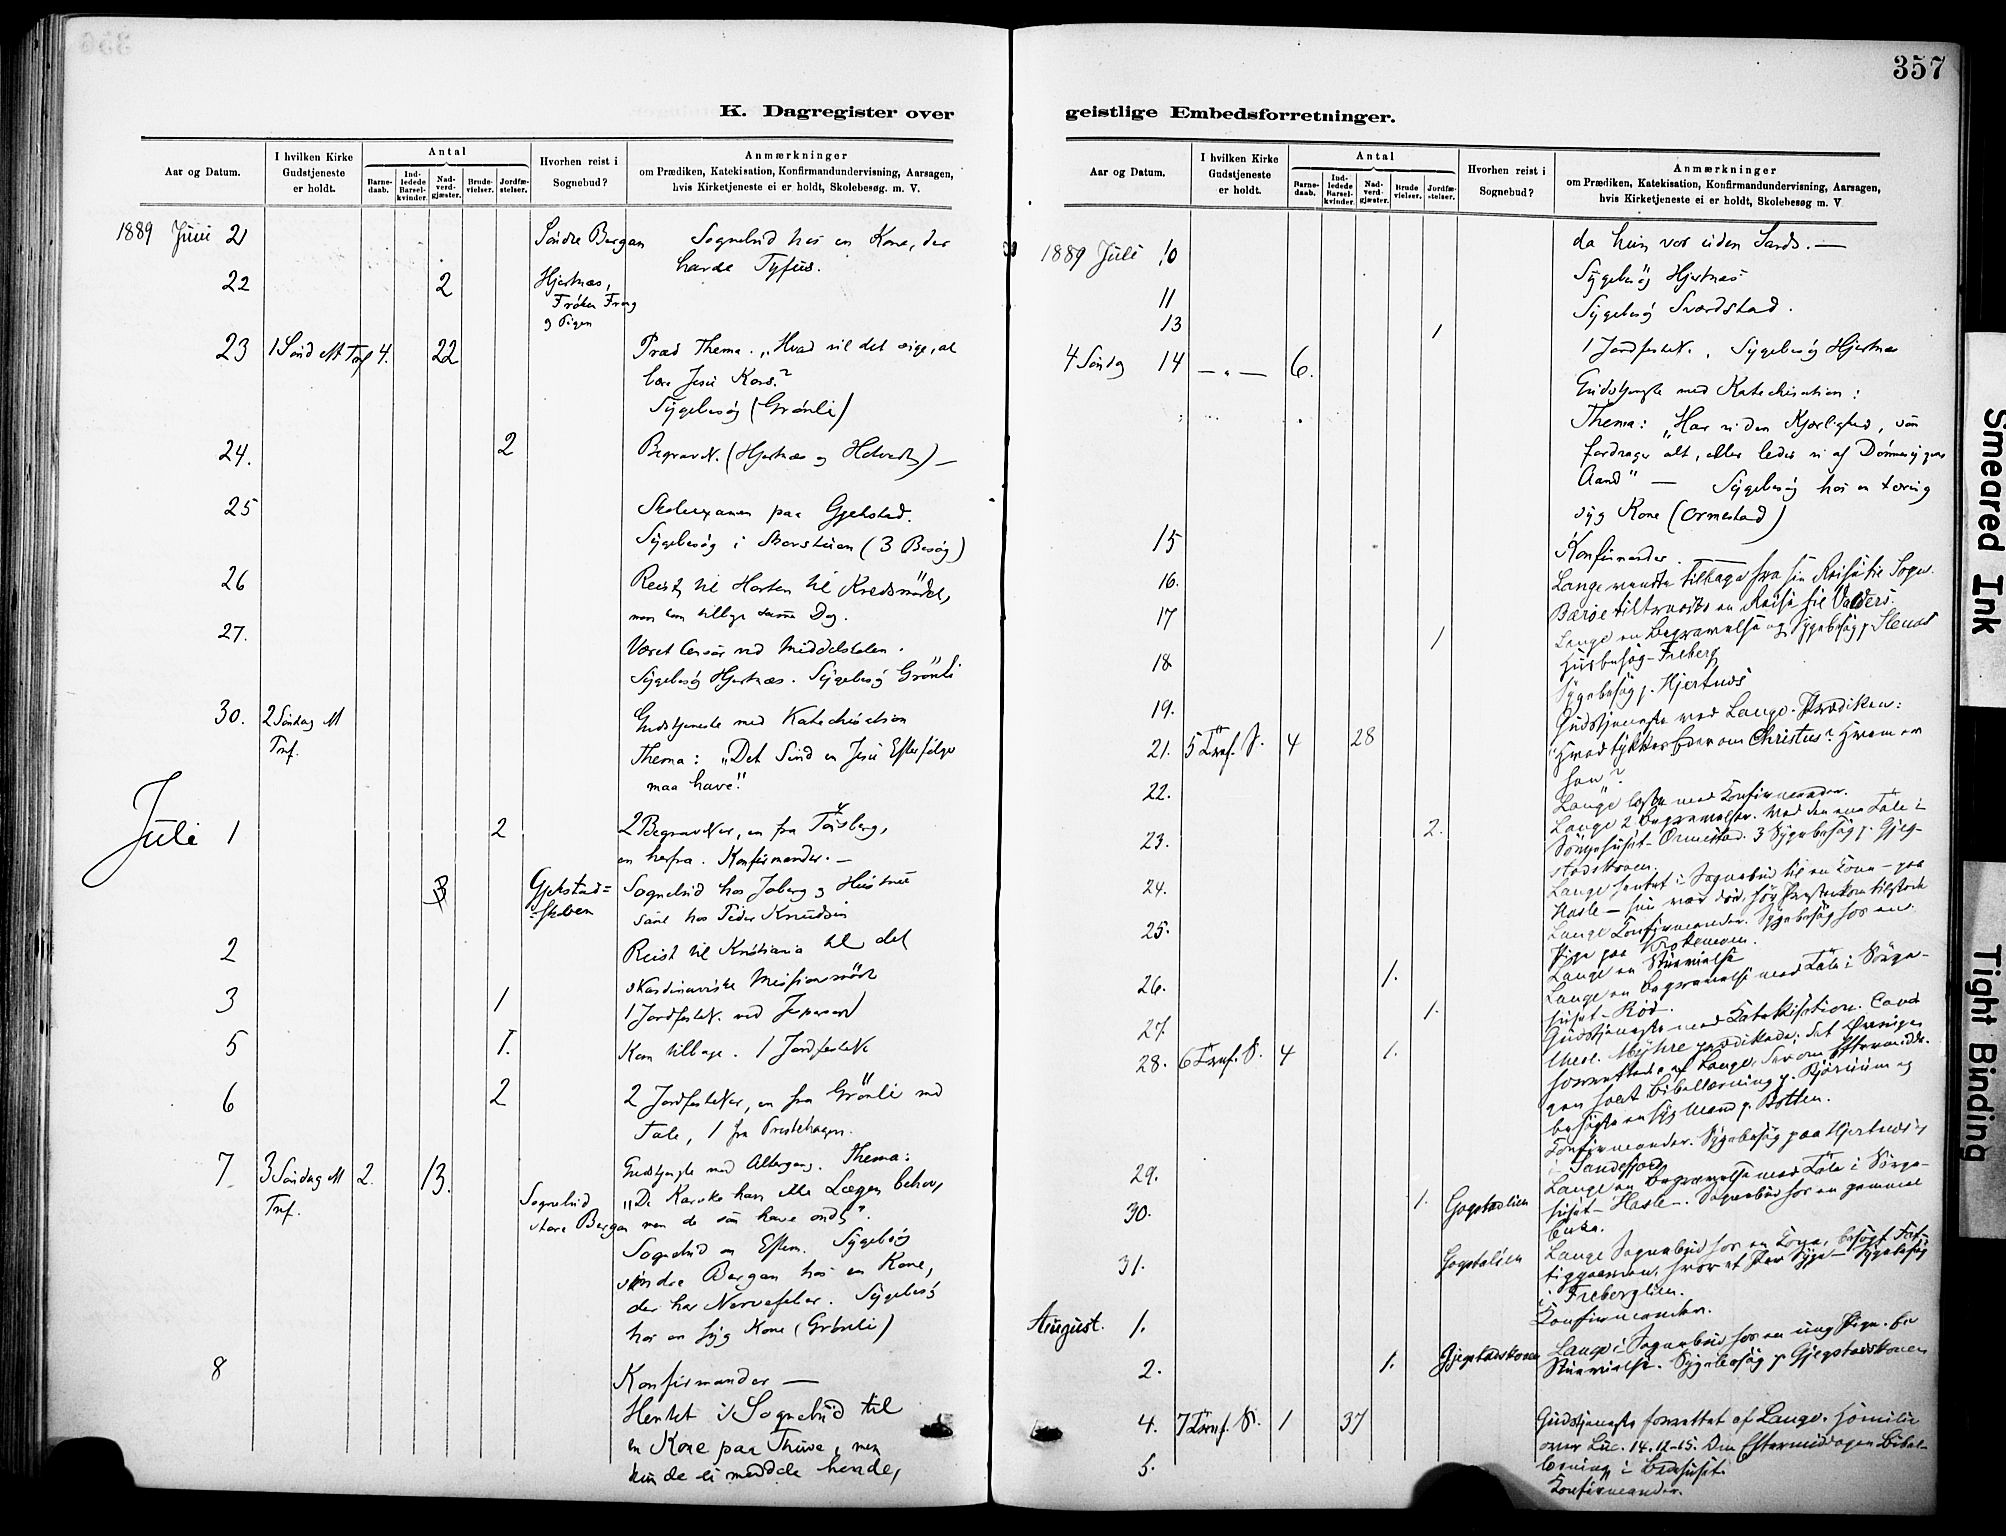 K. Dagregister over
Aar og Datum.
I hvilken Kirke
Gudstjeneste
er holdt.
Antal
Barne-
daab.
Ind-
ledede
Barsel-
kvinder.
Nad-
verd-
gjæster.
Brude-
vielser.
Jordfæ-
stelser.
Hvorhen reist i
Sognebud?
Anmærkninger
om Prædiken, Katekisation, Konfirmandundervisning, Aarsagen,
hvis Kirketjeneste ei er holdt, Skolebesøg. m. V.
1889 Juni 21 Søndre Bergan Sognebud hos en Kone, der
havde Tyfus.
22 2 Hjertnæs,
Frøken
og Pigen
23 1 Sønd eft Tref 4. 22 Præd Thema. "Hvad vil det sige, at
bære Jesu Kors?
Sygebesøg (Grönli)
24. 2 Begravels. (Hjertnæs og
25 Skoleexamen paa Gjekstad.
Sygebesøg i (3 Besøg)
26 Reist til Horten til Kredsmödet,
kom tilbage samme Dag.
27. Været Censor ved Middelskolen.
Sygebesög Hjertnæs. Sygebesög Grönli
30. 2 Söndag eft
Tref.
Gudstjeneste med Katechisation
Thema: "Det Sind en Jesu Efterfølger
maa have."
Juli 1 2 2 Begravelser, en fra Tönsberg,
en herfra. Konfirmander. —
3 Gjekstad=
=skoven
Sognebud hos Joberg og Hustru
samt hos Peder Knudsen
2 Reist til Kristiania til det
skandinaviske Missionsmöde
3 1 1 Jordfestels. ved Jespersen
5 1. Kom tilbage. 1 Jordfestelse
6 2 2 Jordfestelser, en fra Grönli med
Tale, 1 fra Prestehagen.
7 3 Söndag eft
Tref.
2. 13.
Sognebud
store Bergan
Gudstjeneste med Altergang. Thema:
"De Karske have ikke Lægen behov,
men de som have ondt".
Sognebud om Efterm. Sygebesög
söndre Bergan hos en Kone,
der har Nervefeber. Sygebesög
hos en syg Kone (Grönli)
8 Konfirmander —
Hentet i Sognebud til
en Kone paa Thuve, men
kunde ei meddele hende,
357
geistlige Embedsforretninger.
Aar og Datum.
I hvilken Kirke
Gudstjeneste
er holdt.
Antal
Barne-
daab.
Ind-
ledede
Barsel-
kvinder.
Nad-
verd-
gjæster.
Brude
vielser.
Jordfæ-
stelser.
Hvorhen reist i
Sognebud?
Anmærkninger
om Prædiken, Katekisation, Konfirmandundervisning, Aarsagen,
hvis Kirketjeneste ei er holdt, Skolebesøg m. V
da hun var uden Sands. —
1889 Juli 10 Sygebesög Hjertnæs
11 Sygebesög Sværdstad.
13 1 1 Jordfestels., Sygebesög Hjertnæs
4 Söndag 14 — " — 6. Gudstjeneste med Katechisation:
Thema: "Har vi den Kjærlighed, som
fordrager alt, eller ledes vi af Dømmesygens
Aand" — Sygebesög hos en tæring
syg Kone (Ormestad)
15 Konfirmander.
16. Lange vendte tilbage fra sin Reise til Sogn.
17 Bærøe tiltraadte en Reise til Valders.
1 Lange en Begravelse og Sygebesøg p.
18 Husbesøg - Freberg
19. Sygebesøg p. Hjertnæs
21. 5 Tref. S. 4 28 Gudstjeneste ved Lange. Prædiken:
"Hvad tykkes Eder om Christus? Hvem er
han?"
22. Lange læste med Konfirmander.
23. 2. Lange 2 Begravelser. Ved den ene Tale i
Sörgehuset - Ormestad. 3 Sygebesøg p. Gjeg-
stadskoven.
24. Lange hentet i Sognebud til en Kone - paa
Hasle - hun var død, før Presten kom tilstede
25. Lange Konfirmander. Sygebesøg hos en
Pige paa
26. 1. Lange en Brudevielse
27. 1. Lange en Begravelse med Tale i Sörge-
huset - Röd -.
28. 6 Tref. S. 4 1. Gudstjeneste med Katekisation. Cand.
theol. Myhre prædikede; det Övrige
forrettedes af Lange, som om Eftermidda-
gen holdt Bibellæsning p. og
besøgte en syg Mand p. Botten.
29. Konfirmander. Sygebesøg paa Hjertnæs og
i Sandefjord
30. 1. Gogstadlien Lange en Begravelse med Tale i Sörge-
huset - Hasle -. Sognebud hos en gammel
Enke.
31. Gogstadlien Lange Sognebud hos en Kone, besøgt Fat-
tiggaarden, hvor et Par Syge - Sygebesøg
i Freberglien.
August. 1. Konfirmander.
2. 1. Gjegstadskoven Lange i Sognebud hos en ung Pige. En
Brudevielse. Sygebesøg p. Gjegstadskoven
4. 7 Tref. S. 1 37 Gudstjeneste forrettet af Lange. Homilie
over Luc. 14. 12-15. Om Eftermiddagen Bibel-
læsning i Bedehuset.
5. Konfirmander.
Smeared Ink
Tight Binding